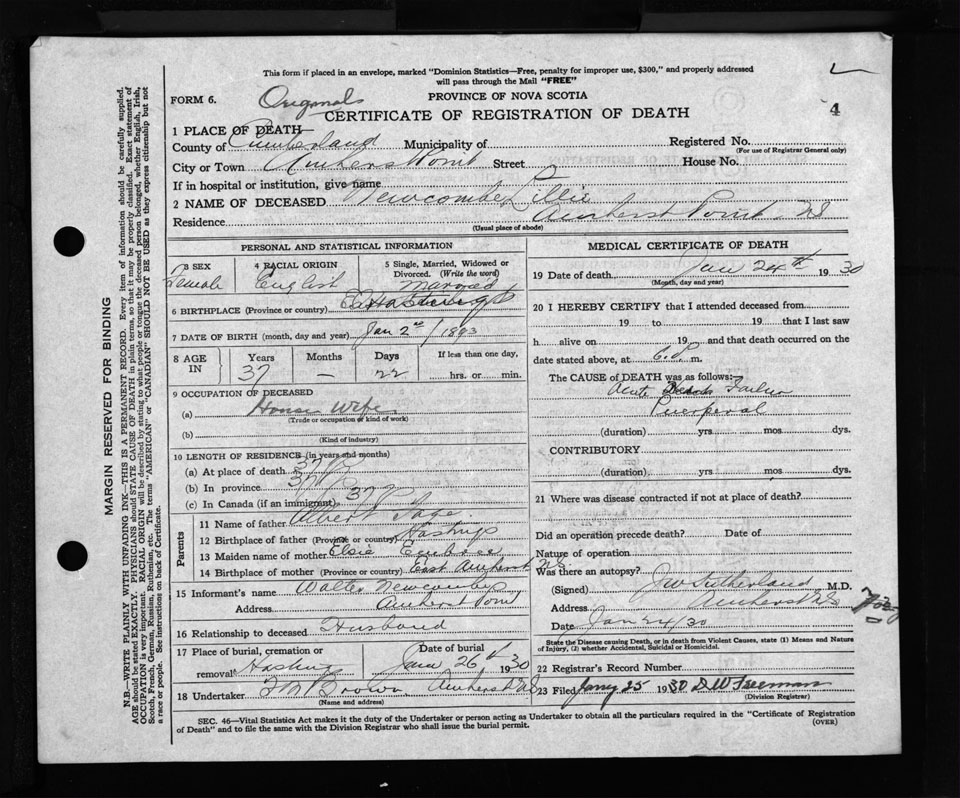 This form if placed in an envelope, marked "Dominion Statistics—Free, penalty for improper use, $300," and properly addressed
will pass through the Mail "FREE"
FORM 6.
Originals
PROVINCE OF NOVA SCOTIA
CERTIFICATE OF REGISTRATION OF DEATH
4
1 PLACE OF DEATH
County of Cumberland Municipality of Registered No.
(For use of Registrar General only)
City or Town Amherst Point Street House No.
If in hospital or institution, give name
2 NAME OF DECEASED Newcombe, Lillie
Residence Amherst Point NS
(Usual place of abode)
PERSONAL AND STATISTICAL INFORMATION
3 SEX Female
4 RACIAL ORIGIN English
5 Single, Married, Widowed or Divorced. (Write the word) Married
6 BIRTHPLACE (Province or country)
7 DATE OF BIRTH (month, day and year) Jan 2nd / 1893
8 AGE IN Years 37 Months — Days 22 If less than one day, hrs. or min.
9 OCCUPATION OF DECEASED
(a) House Wife
(Trade or occupation or kind of work)
(b)
(Kind of industry)
10 LENGTH OF RESIDENCE (in years and months)
(a) At place of death 37
(b) In province 37
(c) In Canada (if an immigrant) 37
Parents
11 Name of father Albert
12 Birthplace of father (Province or country) Hastings
13 Maiden name of mother Elsie
14 Birthplace of mother (Province or country) East Amherst NS
15 Informant's name Walter Newcombe
Address Amherst Point
16 Relationship to deceased Husband
17 Place of burial, cremation or removal Hastings Date of burial Jan 26th 1930
18 Undertaker Brown Amherst NS
(Name and address)
MEDICAL CERTIFICATE OF DEATH
19 Date of death Jan 24th 1930
(Month, day and year)
20 I HEREBY CERTIFY that I attended deceased from
19 to 19 that I last saw
h alive on 19 and that death occurred on the
date stated above, at 6. P. m.
The CAUSE of DEATH was as follows:
Acute Failure
Puerperal
(duration) yrs mos dys.
CONTRIBUTORY
(duration) yrs mos dys.
21 Where was disease contracted if not at place of death?
Did an operation precede death? Date of
Nature of operation
Was there an autopsy?
(Signed) J W Sutherland M.D.
Address Amherst NS
Date Jan 24/30
State the Disease causing Death, or in death from Violent Causes, state (1) Means and Nature
of Injury, (2) whether Accidental, Suicidal or Homicidal.
22 Registrar's Record Number
23 Filed Jany 25 1930 D W Freeman
(Division Registrar)
SEC. 46—Vital Statistics Act makes it the duty of the Undertaker or person acting as Undertaker to obtain all the particulars required in the "Certificate of Registration
of Death" and to file the same with the Division Registrar who shall issue the burial permit. (OVER)
MARGIN RESERVED FOR BINDING
N.B.—WRITE PLAINLY WITH UNFADING INK—THIS IS A PERMANENT RECORD. Every item of information should be carefully supplied.
AGE should be stated EXACTLY. PHYSICIANS should STATE CAUSE OF DEATH in plain terms, so that it may be properly classified. Exact statement of
OCCUPATION is very important. RACIAL ORIGIN will be described by stating to what people or tongue the deceased person belonged, whether English, Irish,
Scotch, French, German, Russian, Ruthenian, etc. The terms "AMERICAN" or "CANADIAN" SHOULD NOT BE USED as they express citizenship but not
a race or people. See instructions on back of Certificate.